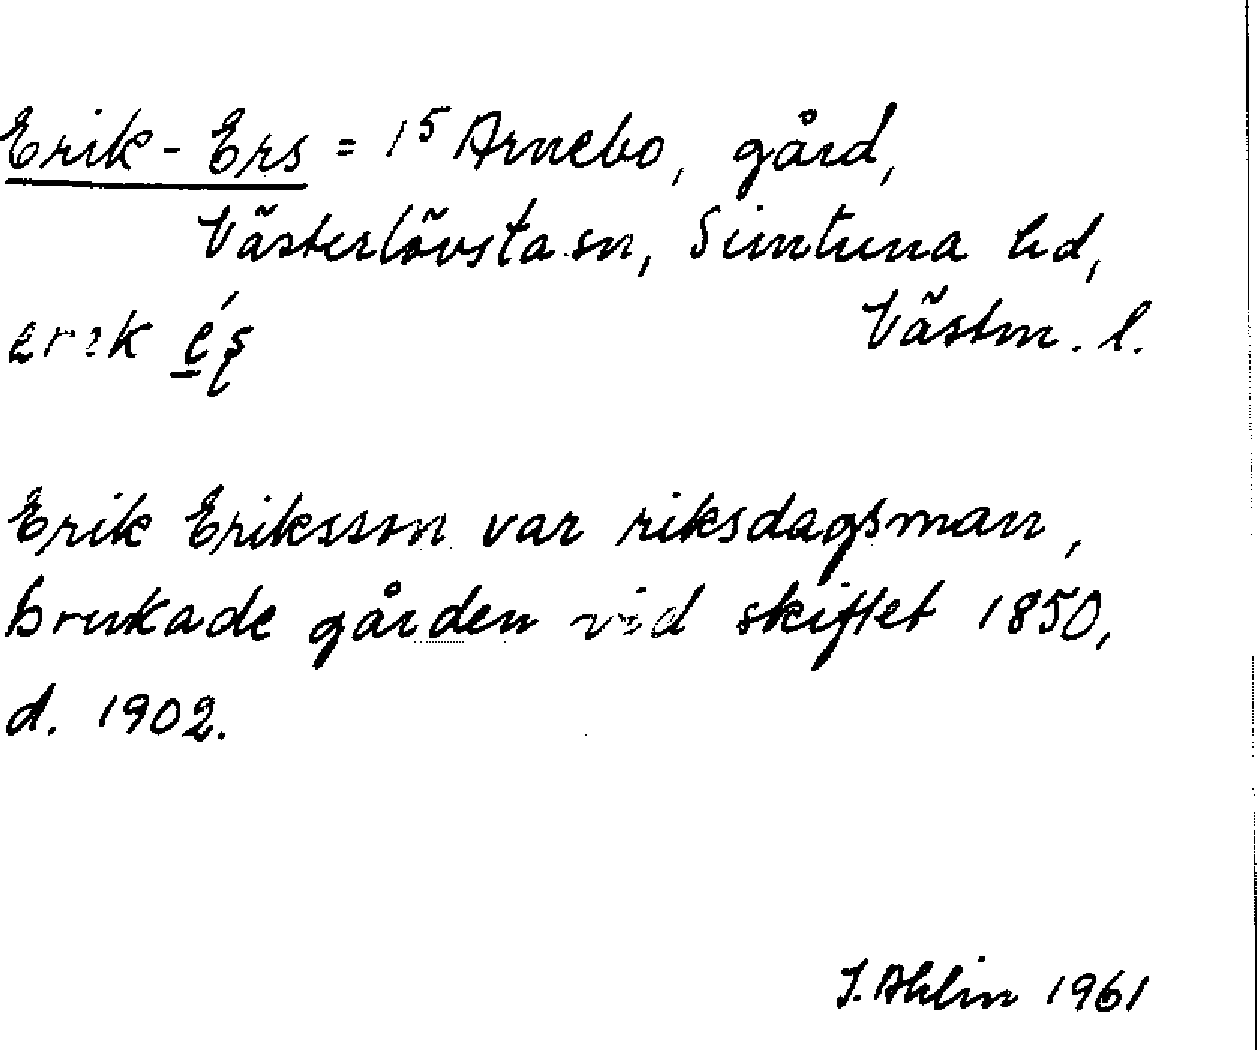 Erik-Ers = 1⁵ Arnebo, gård,
Västerlövsta sn, Simtuna hd,
Västm. l.
erik é̲ş
Erik Eriksson var riksdagsman,
brukade gården vid skiftet 1850,
d. 1902.
J. Ahlin 1961